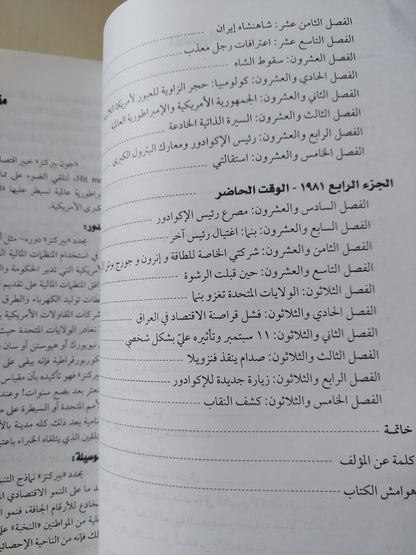 الفصل الثامن عشر: شاهنشاه إيران
الفصل التاسع عشر: اعترافات رجل معذب
الفصل العشرون: سقوط الشاه
الفصل الحادي والعشرون: كولومبيا: حجر الزاوية للعبور لأمريكا
الفصل الثاني والعشرون: الجمهورية الأمريكية والإمبراطورية العالمية
الفصل الثالث والعشرون: السيرة الذاتية الخادعة
الفصل الرابع والعشرون: رئيس الإكوادور ومعارك البترول الكبرى
الفصل الخامس والعشرون: استقالتي
الجزء الرابع ١٩٨١ - الوقت الحاضر
الفصل السادس والعشرون: مصرع رئيس الإكوادور
الفصل السابع والعشرون: بنما: اغتيال رئيس آخر
الفصل الثامن والعشرون: شركتي الخاصة للطاقة و إنرون و جورج بوش
الفصل التاسع والعشرون: حين قبلت الرشوة
الفصل الثلاثون: الولايات المتحدة تغزو بنما
الفصل الحادي والثلاثون: فشل قراصنة الاقتصاد في العراق
الفصل الثاني والثلاثون: ١١ سبتمبر وتأثيره عليّ بشكل شخصي
الفصل الثالث والثلاثون: صدام ينقذ فنزويلا
الفصل الرابع والثلاثون: زيارة جديدة للإكوادور
الفصل الخامس والثلاثون: كشف النقاب
خاتمة
كلمة عن المؤلف
هوامش الكتاب
«جون بيركنز» خبير
Hit m
لتلقي الضوء على
إمبراطورية عالمية تسيطر عليها
الكبرى الأمريكية.
يحدد «بيركنز» دوره- مثل
في استخدام المنظمات المالية
الأمريكية التي تدير الحكومة
المنظمات المالية على تقديم
توليد الكهرباء والطرق
شركات المقاولات الأمريكية
تغادر الولايات المتحدة حيث
نيويورك أو هيوستن أو سان
فإنه يبقى على
«بيركنز» فهو تأكيده بأن مقياس
بعد بضع سنوات! وعند
المتحدة أو السيطرة على
نامية بعد ذلك كله مدينة
الذي يتلقاه الخبراء
يحدد «بيركنز» نماذج
ما على النمو الاقتصادي
للأرقام الجافة، فنمو
من المواطنين «النخبة» على
ذلك فإنه من الناحية